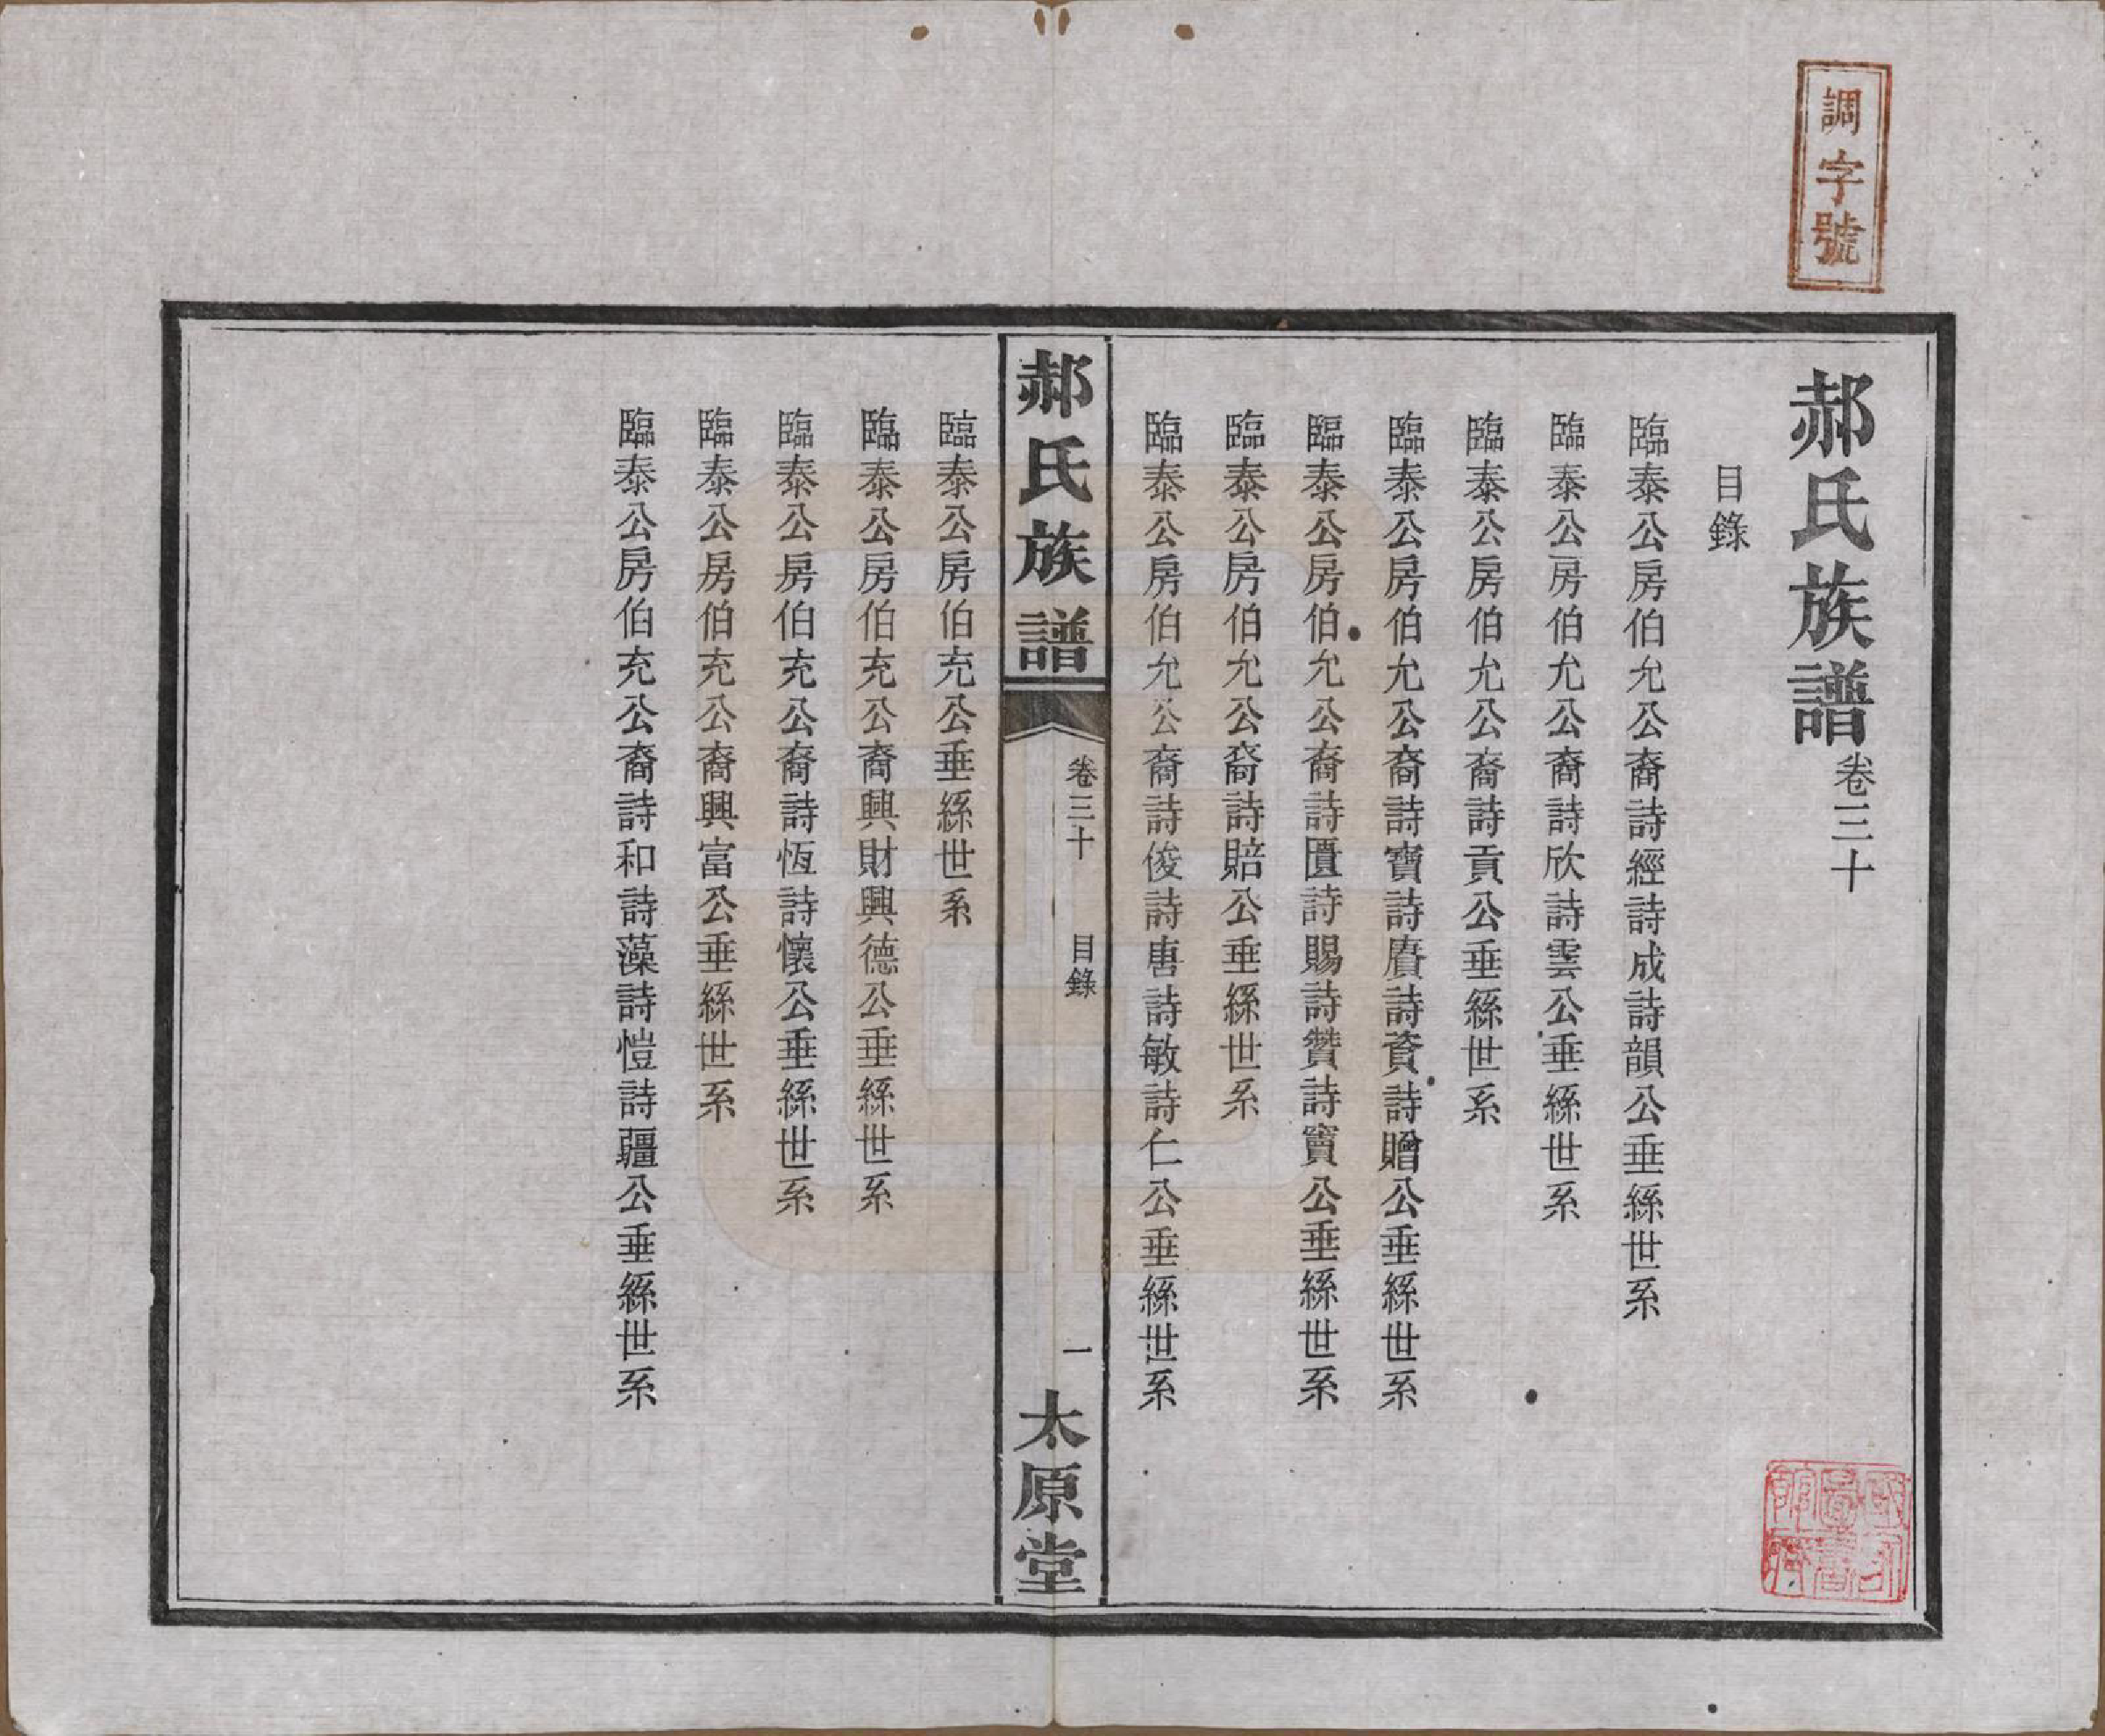 調字號
郝氏族譜卷三十
目錄
臨泰公房伯允公裔詩經詩成詩韻公垂絲世系
臨泰公房伯允公裔詩欣詩雲公垂絲世系
臨泰公房伯允公裔詩貢公垂絲世系
臨泰公房伯允公裔詩寶詩賡詩資詩贈公垂絲世系
臨泰公房伯允公裔詩匱詩賜詩贊詩寶公垂絲世系
臨泰公房伯允公裔詩賠公垂絲世系
臨泰公房伯允公裔詩俊詩唐詩敏詩仁公垂絲世系
郝氏族譜
卷三十
目錄
一
太原堂
臨泰公房伯充公垂絲世系
臨泰公房伯充公裔興財興德公垂絲世系
臨泰公房伯充公裔詩恆詩懷公垂絲世系
臨泰公房伯充公裔興富公垂絲世系
臨泰公房伯充公裔詩和詩藻詩愷詩疆公垂絲世系